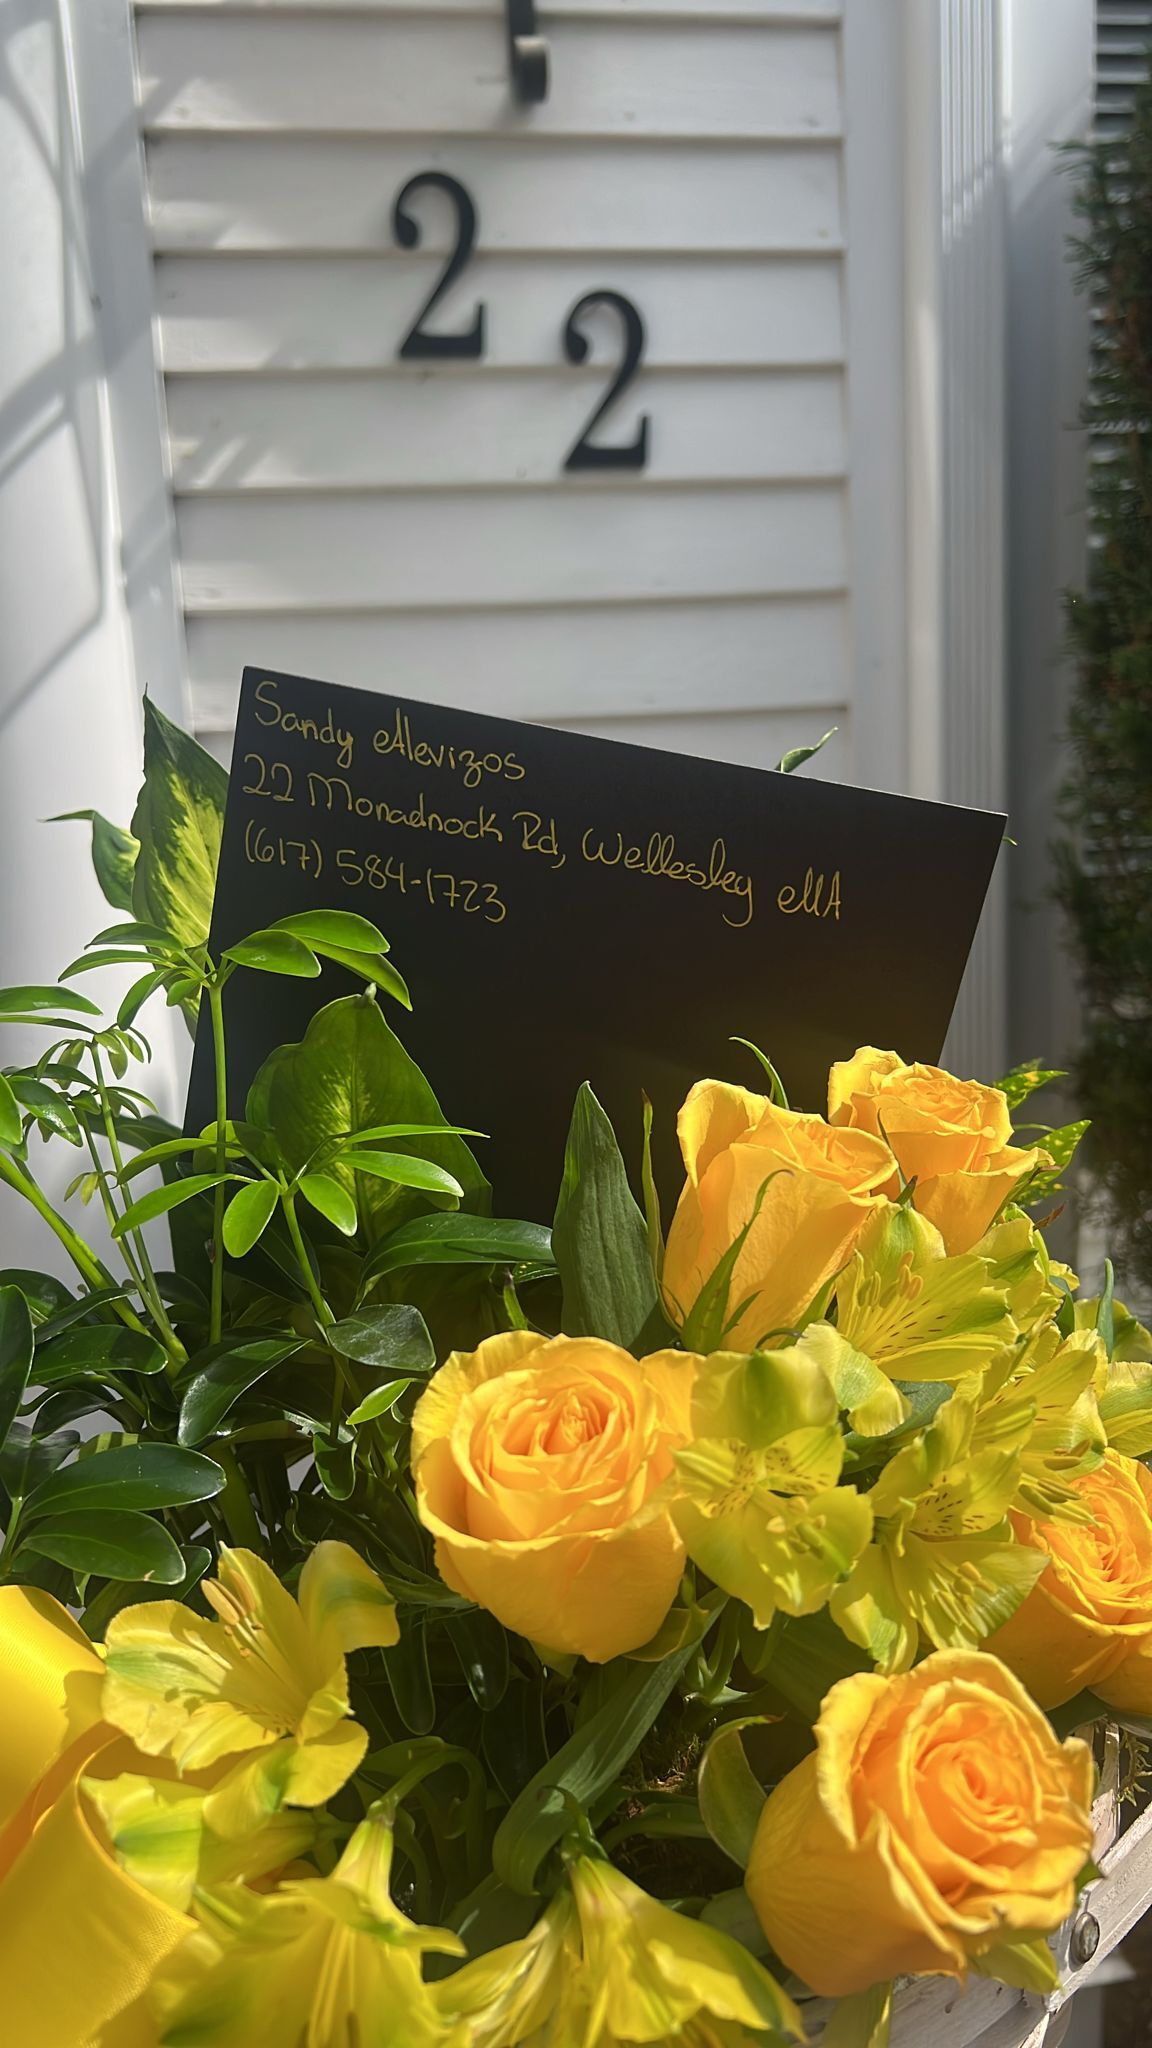 22
Sandy Alevizos
22 Monadnock Rd, Wellesley MA
(617) 584-1723